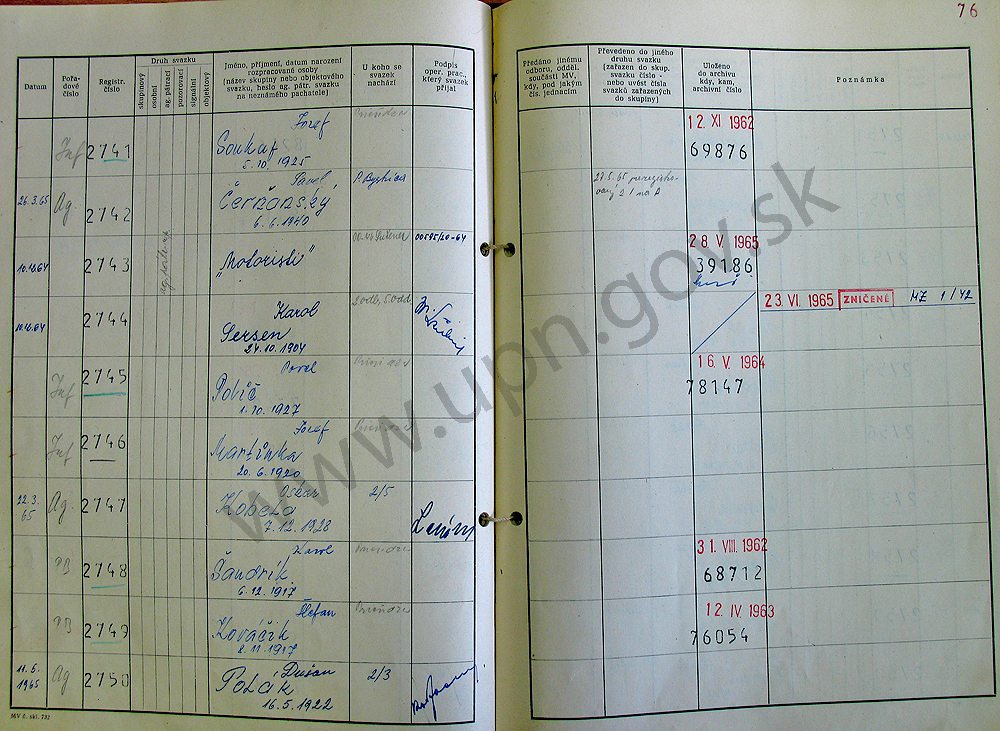 76
Datum
Pořa-
dové
číslo
Registr.
číslo
Druh svazku
skupinový
osobní
ag. pátrací
pozorovací
signální
objektový
Jméno, příjmení, datum narození
rozpracované osoby
(název skupiny nebo objektového
svazku, heslo ag. pátr. svazku
na neznámého pachatele)
U koho se
svazek
nachází
Podpis
oper. prac.,
který svazek
přijal
Předáno jinému
odboru, odděl.
součásti MV,
kdy, pod jakým
čís. jednacím
Převedeno do jiného
druhu svazku
(zařazen do skup.
svazku číslo -
nebo uvést čísla
svazků zařazených
do skupiny)
Uloženo
do archivu
kdy, kam,
archivní číslo
Poznámka
Inf 2741
Jozef
5. 10. 1925
12. XI 1962
69876
26.3.65 Ag. 2742
Pavel
Čerňonský
6. 6. 1940
P. Bystrica
10.12.64 2743
"Motoristi"
28 V. 1965
39186
2744
Karol
Sersen
24. 10. 1904
2.odb, 5.odd
23. VI. 1965 ZNIČENÉ MZ 1/42
Inf 2745
Pavel
1. 10. 1927
16. V. 1964
78147
Inf 2746
Jozef
Martinka
20. 6. 1920
22.3.
65 Ag. 2747
Oskar
Kobela
7. 12. 1928
2/5
2748
Karol
Šandrik
6. 12. 1917
31. VIII. 1962
68712
2749
Štefan
Kováčik
8. 11. 1917
12 IV. 1963
76054
11.5.
1965 Ag 2750
Dušan
Polák
16. 5. 1922
2/3
MV č. skl. 732
www.upn.gov.sk